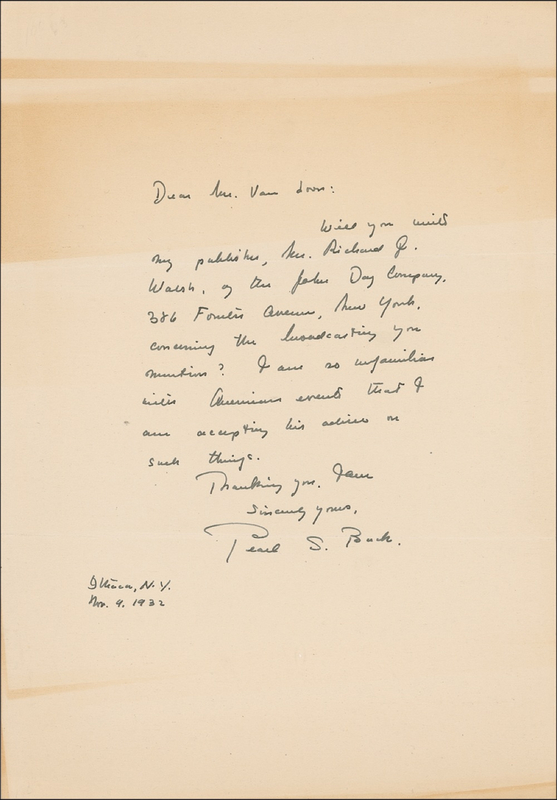 Dear Mr. Van Loon:
Will you write
my publisher, Mr. Richard J.
Walsh, of the John Day Company,
386 Fourth Avenue, New York,
concerning the broadcasting you
mention? I am so unfamiliar
with American events that I
am accepting his advice on
such things.
Thanking you, I am
Sincerely yours,
Pearl S. Buck.
Ithaca, N.Y.
Nov. 9. 1932